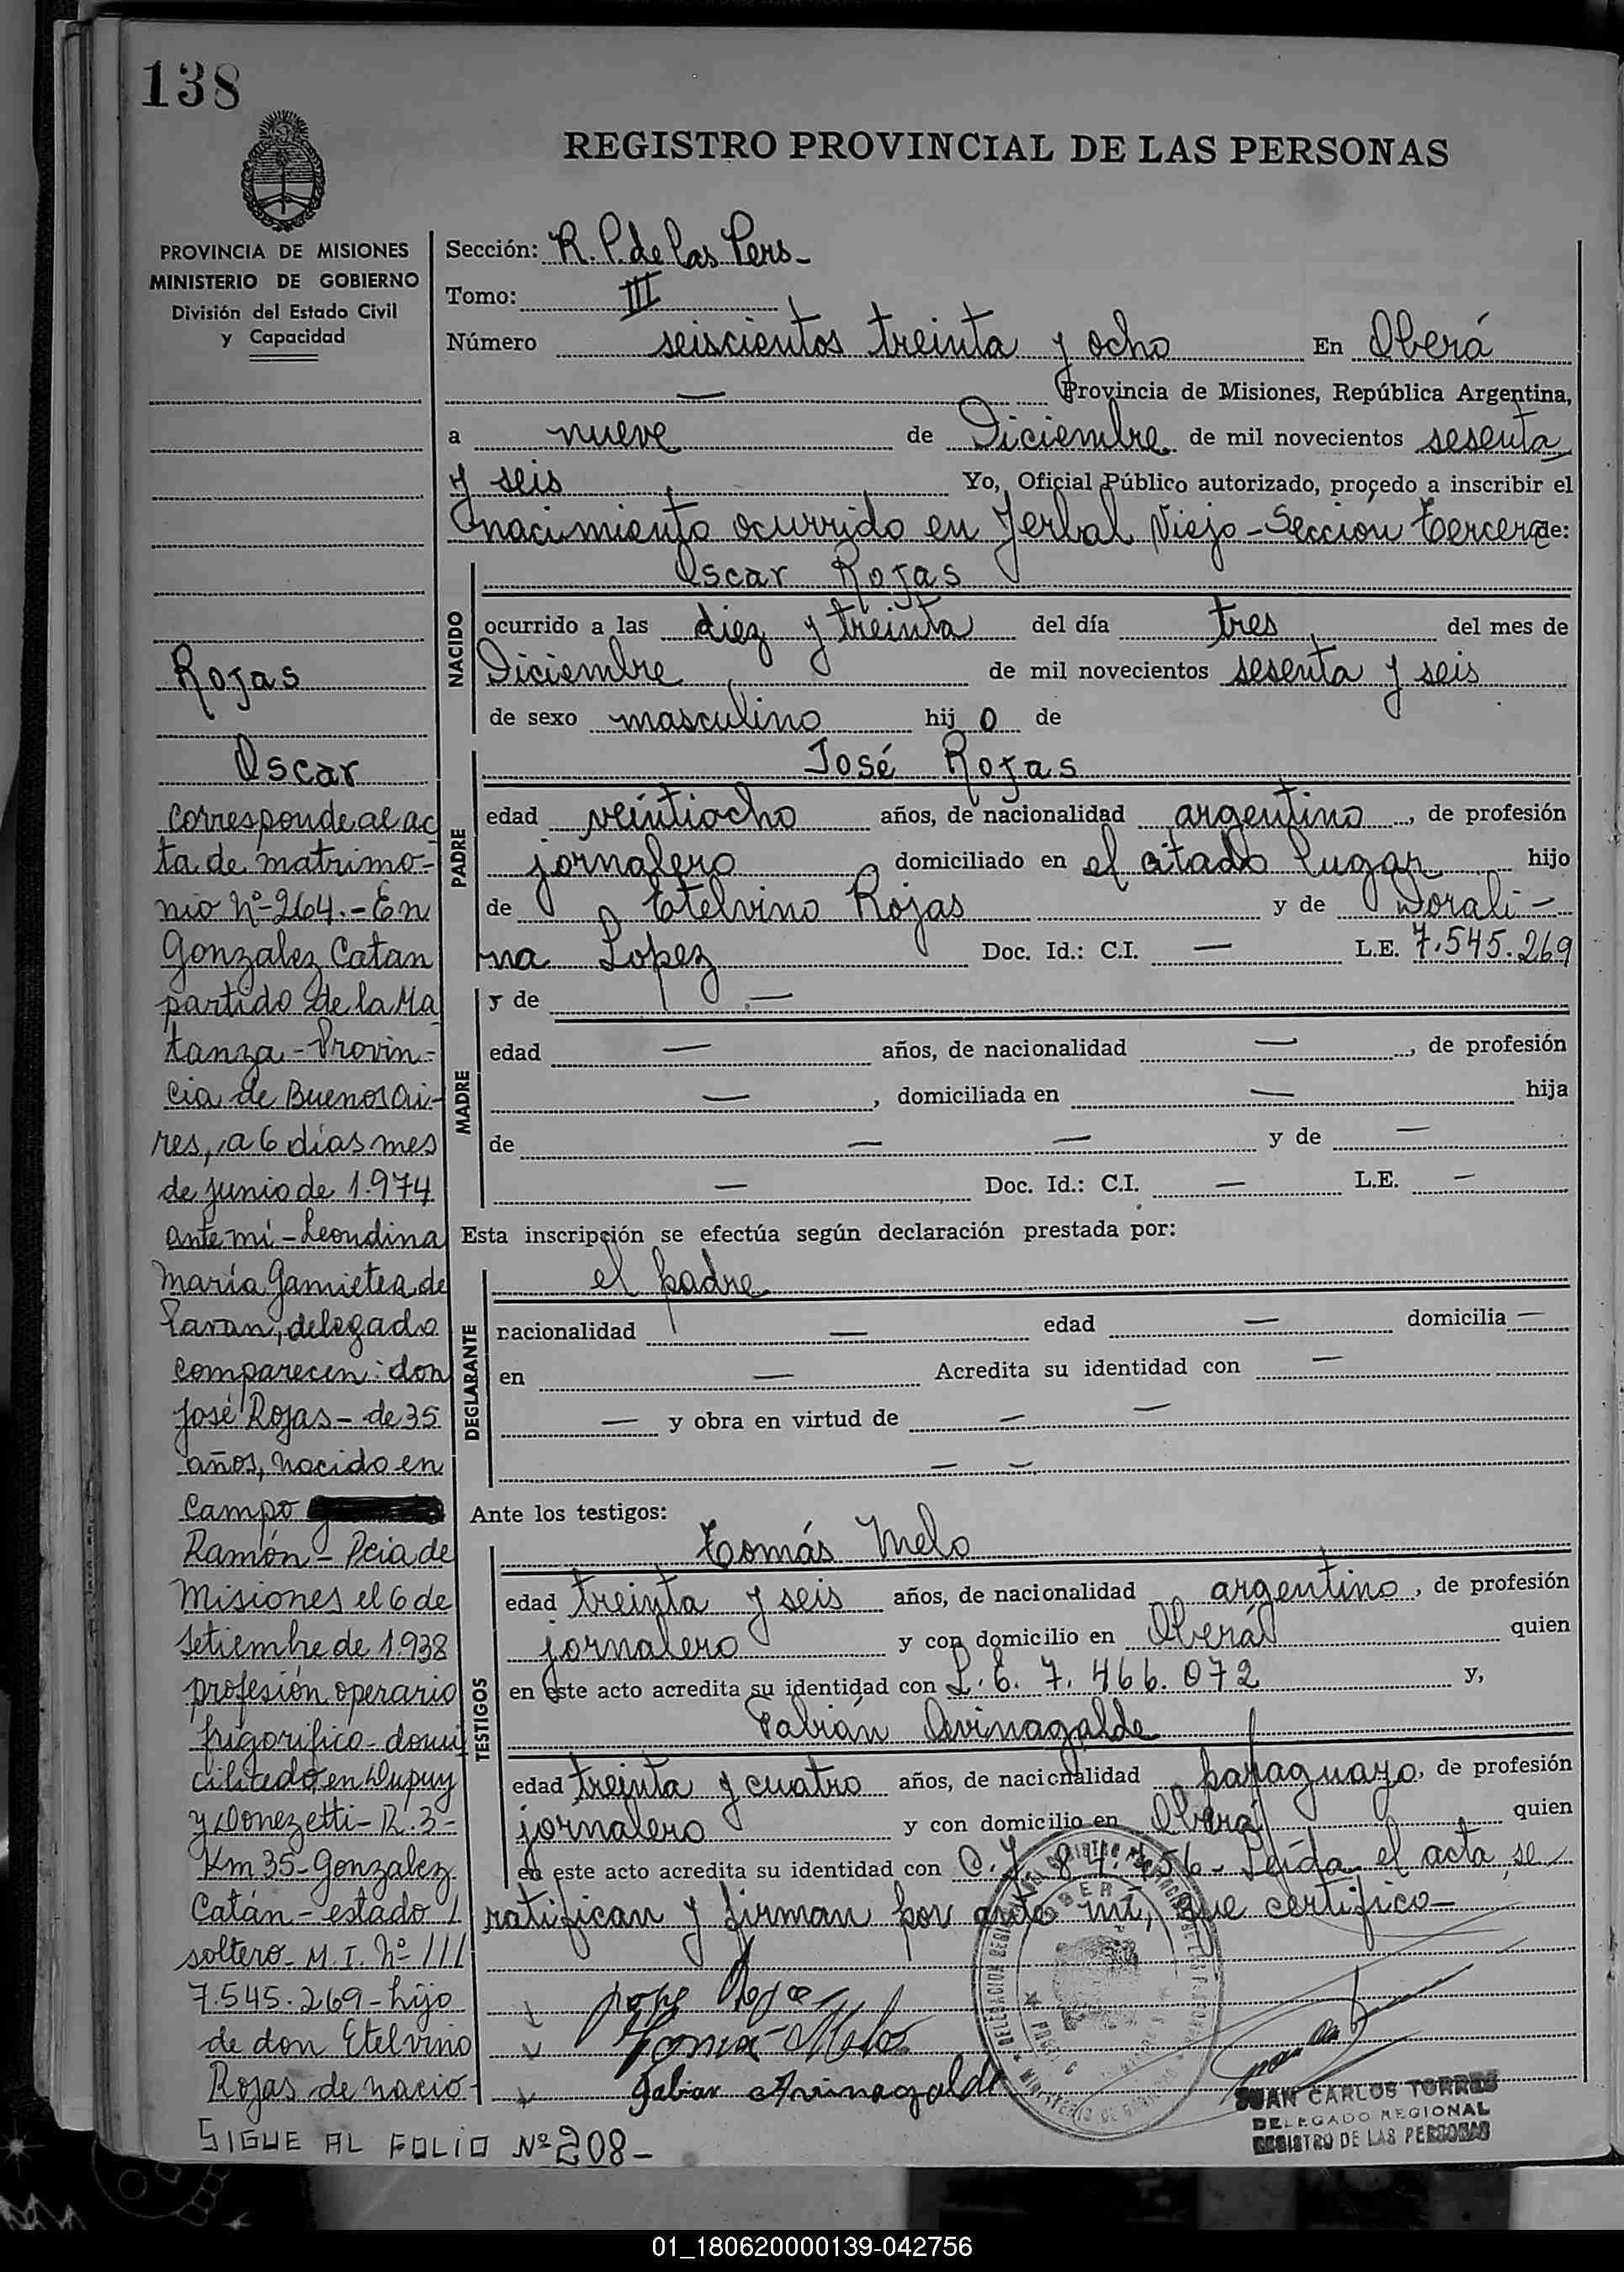 138
REGISTRO PROVINCIAL DE LAS PERSONAS
PROVINCIA DE MISIONES
MINISTERIO DE GOBIERNO
División del Estado Civil
y Capacidad
Rojas
Oscar
corresponde al ac
ta de matrimo-
nio Nº 264.- En
Gonzalez Catan
partido de la Ma
tanza - Provin-
cia de Buenos Ai-
res, a 6 días mes
de junio de 1.974
ante mí - Leondina
María Gamietea de
Pavan, delegado
comparecen: don
José Rojas - de 35
años, nacido en
Campo
Ramón - Pcia de
Misiones el 6 de
Setiembre de 1.938
profesión operario
frigorifico - domi
ciliado, en Dupuy
y Donezetti - R. 3 -
Km 35 - Gonzalez
Catán - estado /
soltero - M. I. Nº ///
7.545.269 - hijo
de don Etelvino
Rojas de nacio-
SIGUE AL FOLIO Nº 208-
Sección: R. P. de las Pers-
Tomo: III
Número seiscientos treinta y ocho En Oberá
— Provincia de Misiones, República Argentina,
a nueve de Diciembre de mil novecientos sesenta
y seis Yo, Oficial Público autorizado, procedo a inscribir el
nacimiento ocurrido en Yerbal Viejo - Sección Tercera de:
NACIDO
Oscar Rojas
ocurrido a las diez y treinta del día tres del mes de
Diciembre de mil novecientos sesenta y seis
de sexo masculino hij o de
PADRE
José Rojas
edad veintiocho años, de nacionalidad argentino, de profesión
jornalero domiciliado en el citado lugar hijo
de Etelvino Rojas y de Dorali-
na Lopez Doc. Id.: C.I. — L.E. 7.545.269
MADRE
y de —
edad — años, de nacionalidad —, de profesión
—, domiciliada en — hija
de — — y de —
— Doc. Id.: C.I. — L.E. —
Esta inscripción se efectúa según declaración prestada por:
DECLARANTE
el padre
nacionalidad — edad — domicilia —
en — Acredita su identidad con —
— y obra en virtud de — —
— —
Ante los testigos:
TESTIGOS
Tomás Melo
edad treinta y seis años, de nacionalidad argentino, de profesión
jornalero y con domicilio en Oberá quien
en este acto acredita su identidad con L. E. 7.466.072 y,
Fabián Avinagalde
edad treinta y cuatro años, de nacionalidad paraguayo, de profesión
jornalero y con domicilio en Oberá quien
en este acto acredita su identidad con C. I. Leída el acta, se
ratifican y firman por ante mí, que certifico—
José Rojas
Tomás Melo
Fabian Avinagalde
JUAN CARLOS TORRES
DELEGADO REGIONAL
REGISTRO DE LAS PERSONAS
01_180620000139-042756